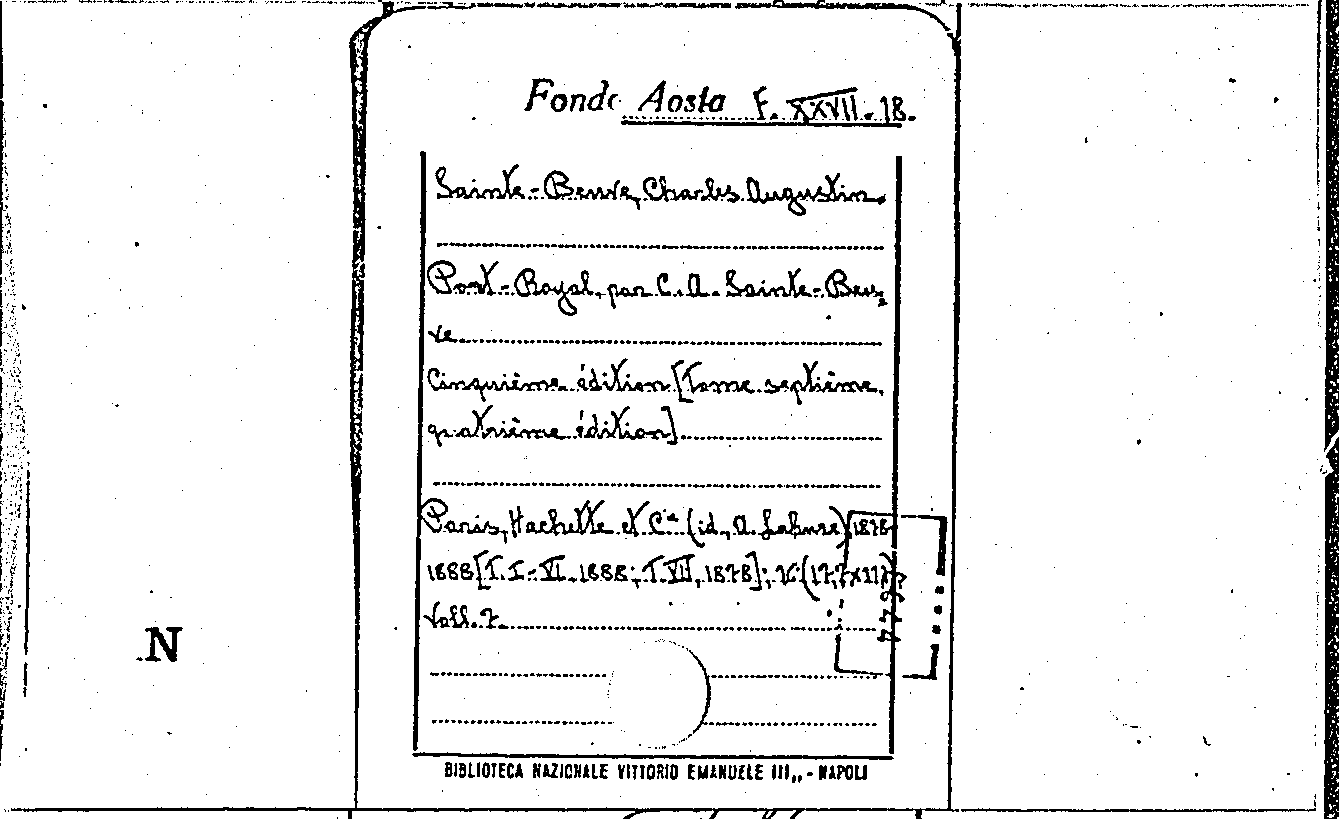 Fondo Aosta F. XXVII. 18.
Sainte-Beuve, Charles Augustin.
Port-Royal, par C. A. Sainte-Beu=
ve
Cinquième édition [Tome septième,
quatrième édition]
Paris, Hachette et Cie (id., A. Lahure), 1878-
1888 [T. I-VI, 1888; T. VII, 1878]; 16° (17,7x11)
Voll. 7.
N
BIBLIOTECA NAZIONALE VITTORIO EMANUELE III,, - NAPOLI